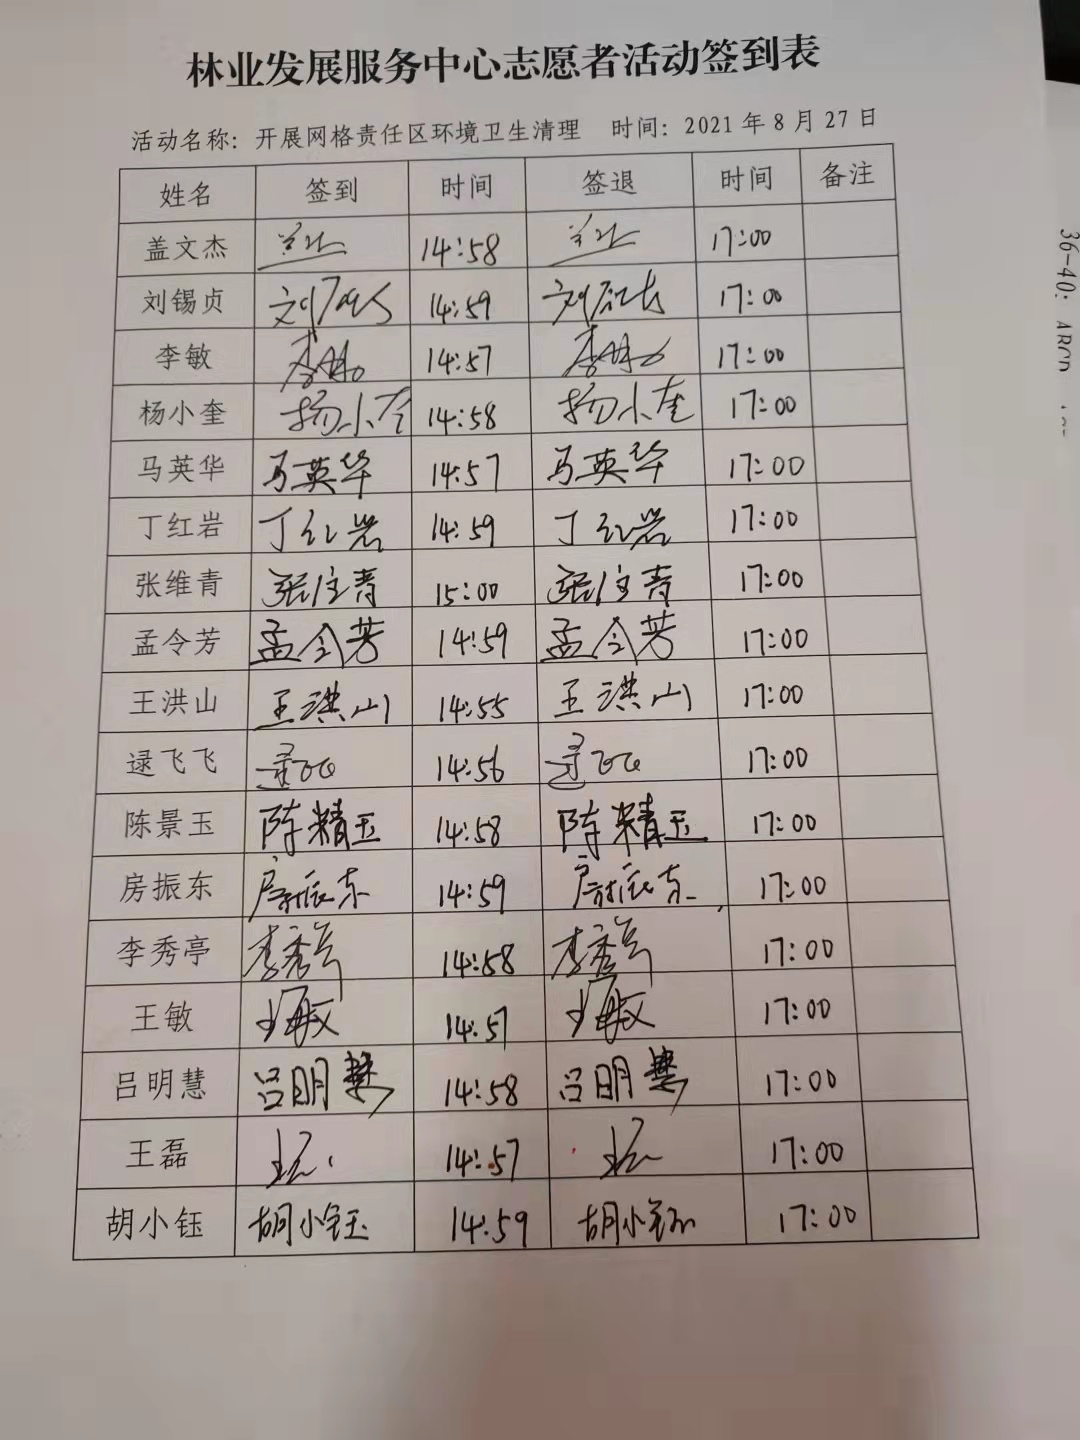 林业发展服务中心志愿者活动签到表
活动名称：开展网格责任区环境卫生清理 时间：2021年8月27日
姓名 签到 时间 签退 时间 备注
盖文杰 14:58 17:00
刘锡贞 14:59 17:00
李敏 李敏 14:57 李敏 17:00
杨小奎 杨小奎 14:58 杨小奎 17:00
马英华 马英华 14:57 马英华 17:00
丁红岩 丁红岩 14:59 丁红岩 17:00
张维青 张维青 15:00 张维青 17:00
孟令芳 孟令芳 14:59 孟令芳 17:00
王洪山 王洪山 14:55 王洪山 17:00
逯飞飞 逯飞飞 14:56 逯飞飞 17:00
陈景玉 陈精玉 14:58 陈精玉 17:00
房振东 房振东 14:59 房振东 17:00
李秀亭 李秀亭 14:58 李秀亭 17:00
王敏 王敏 14:57 王敏 17:00
吕明慧 吕明慧 14:58 吕明慧 17:00
王磊 王磊 14:57 王磊 17:00
胡小钰 胡小钰 14:59 胡小钰 17:00
36-40: ABCD